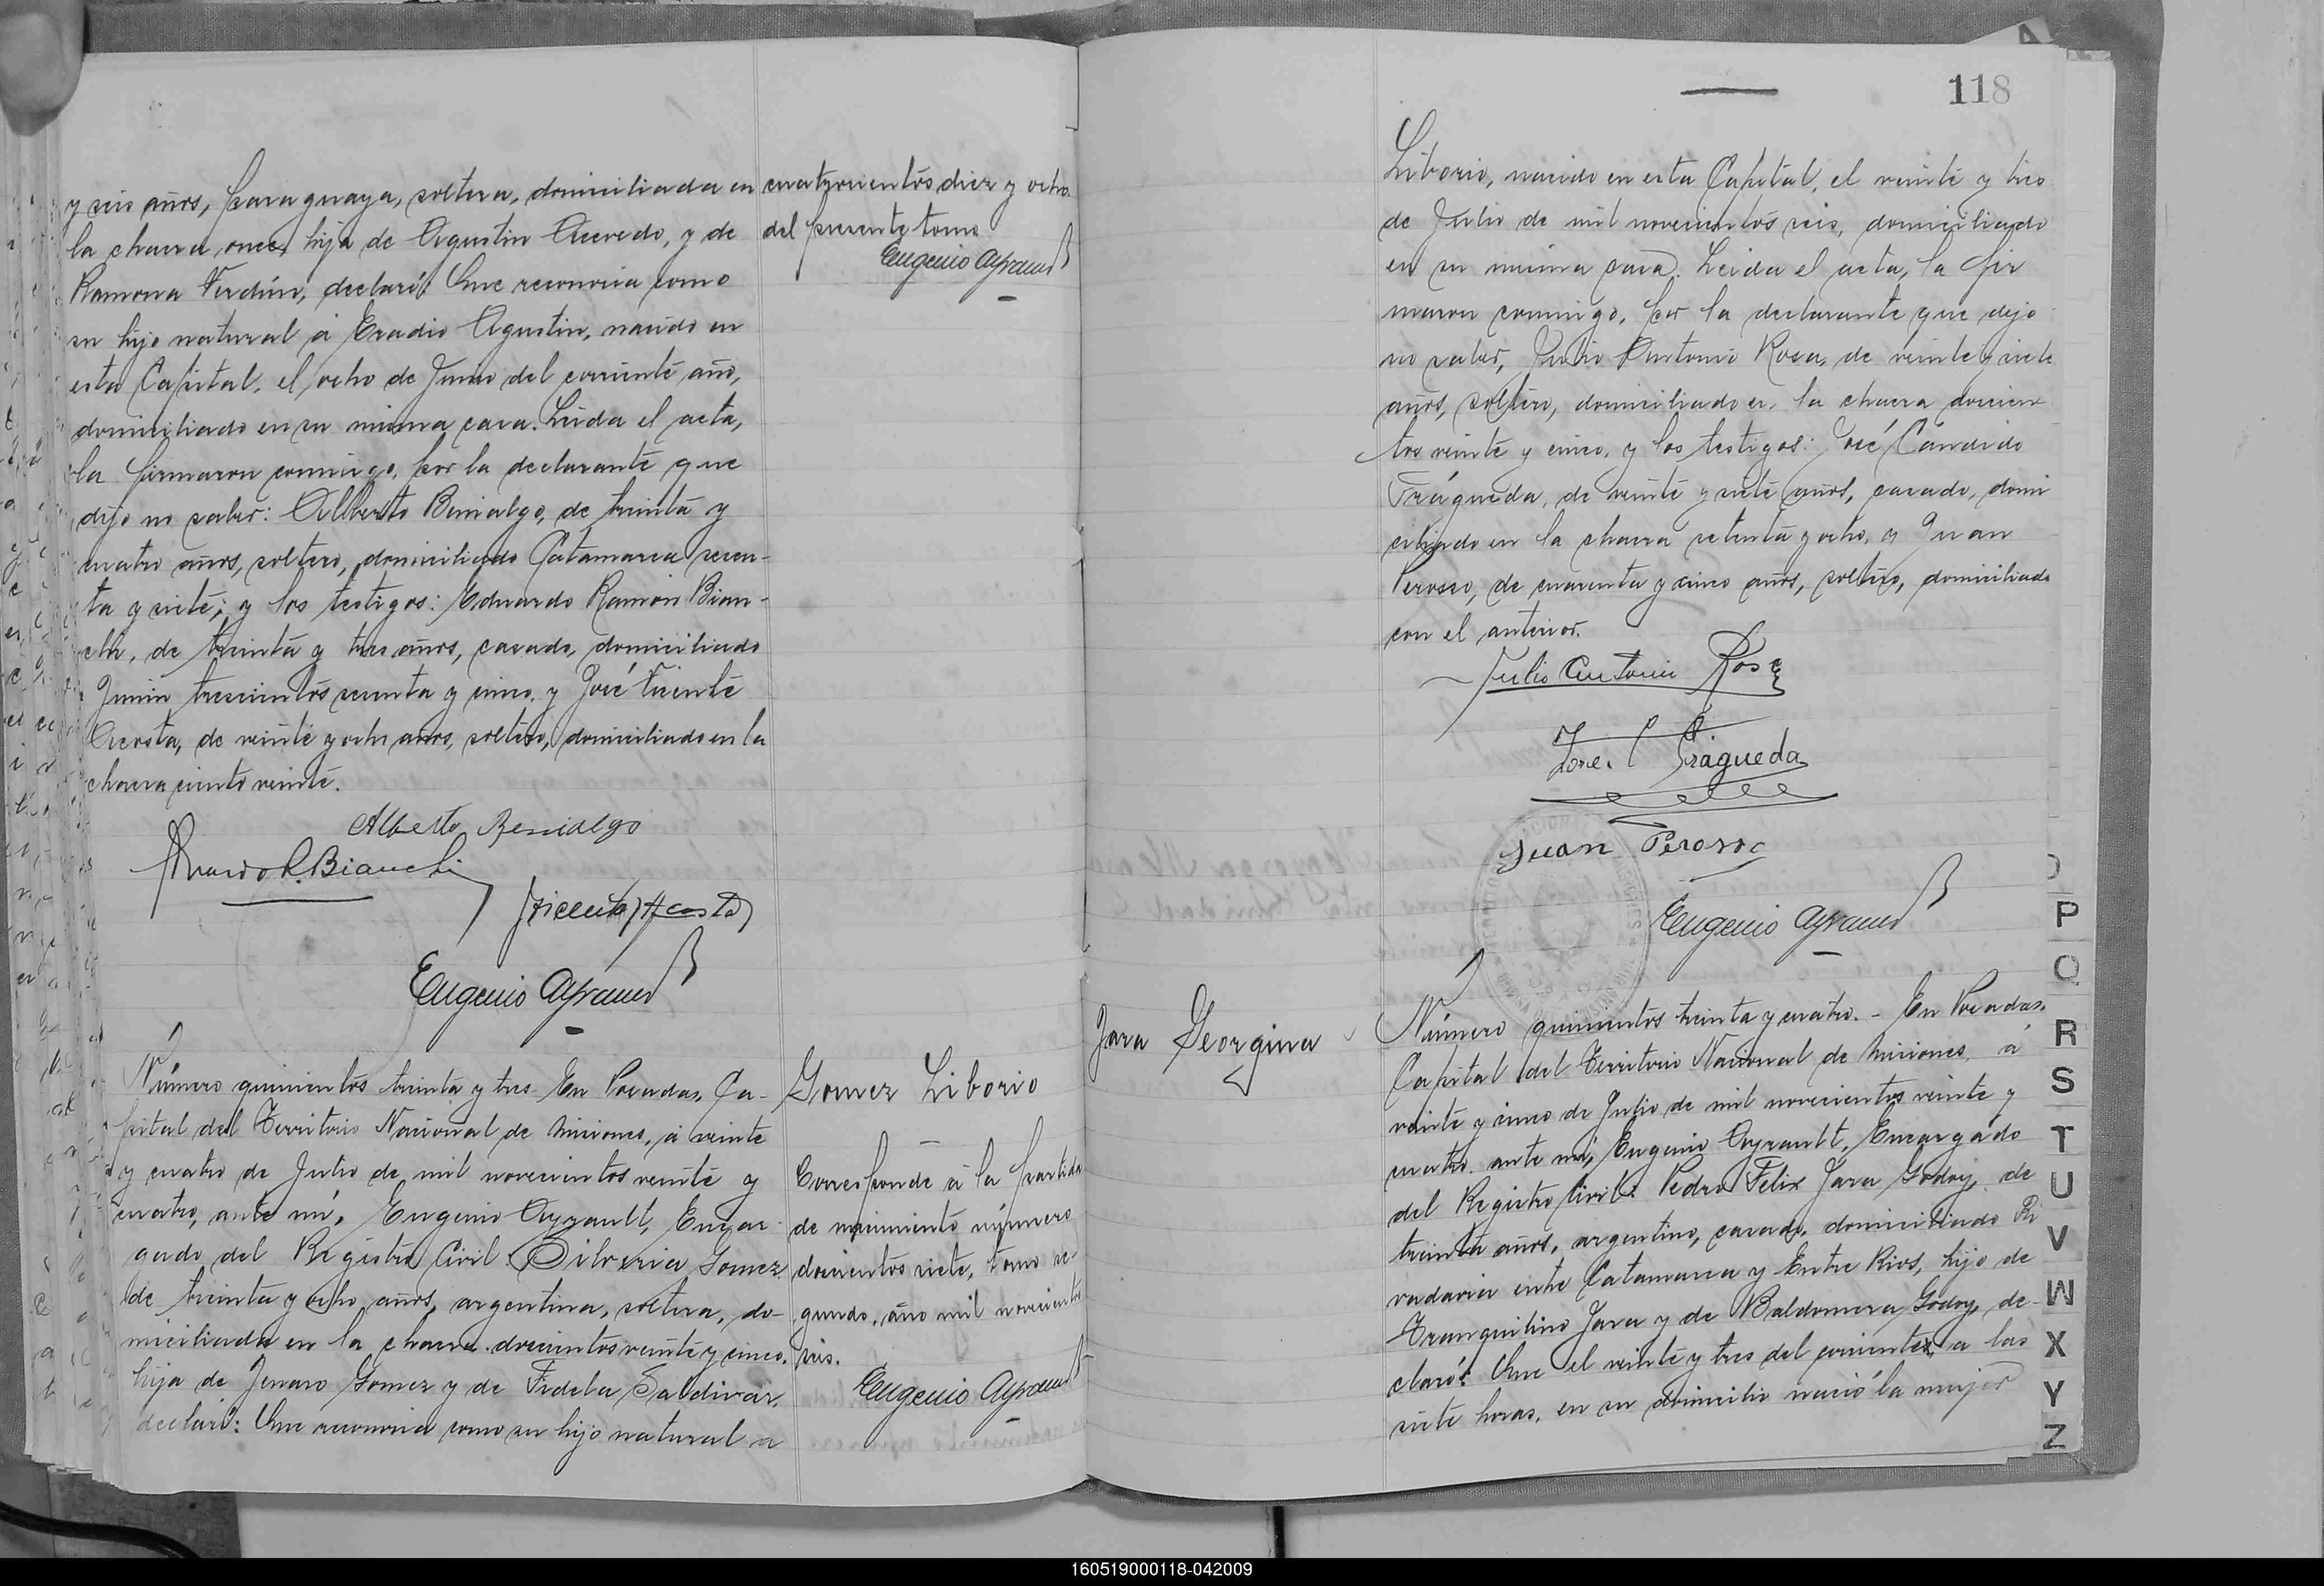 y seis años, paraguaya, soltera, domiciliada en
la chacra once, hija de Agustin Acevedo, y de
Ramona Verdún, declaró: Que reconocia como
su hijo natural á Eradio Agustin, nacido en
esta Capital, el ocho de Junio del corriente año,
domiciliado en su misma casa. Leida el acta,
la firmaron conmigo, por la declarante que
dijo no saber: Alberto Benialgo, de treinta y
cuatro años, soltero, domiciliado Catamarca sesen-
ta y siete; y los testigos: Eduardo Ramón Bian-
chi, de treinta y tres años, casado, domiciliado
Junin trescientos sesenta y cinco, y José Vicente
Acosta, de veinte y ocho años, soltero, domiciliado en la
chacra ciento veinte.
Alberto Benialgo
Eduardo R. Bianchi
J Vicente Acosta
Eugenio Ayrault
cuatrocientos diez y ocho
del presente tomo
Eugenio Ayrault
Número quinientos treinta y tres. En Posadas, Ca-
pital del Territorio Nacional de Misiones, á veinte
y cuatro de Julio de mil novecientos veinte y
cuatro, ante mí, Eugenio Ayrault, Encar-
gado del Registro Civil: Silveria Gomez
de treinta y ocho años, argentina, soltera, do-
miciliada en la chacra doscientos veinte y cinco,
hija de Jenaro Gomez y de Fidela Saldivar,
declaró: Que reconocia como su hijo natural a
Gomez Liborio
Corresponde á la partida
de nacimiento número
doscientos siete, tomo se-
gundo, año mil novecientos
seis.
Eugenio Ayrault
118
Liborio, nacido en esta Capital, el veinte y tres
de Julio de mil novecientos seis, domiciliado
en su misma casa. Leida el acta, la fir
maron conmigo, por la declarante que dijo
no saber, Julio Antonio Rosa, de veinte y siete
años, soltero, domiciliado en la chacra doscien
tos veinte y cinco, y los testigos: José Cándido
Frágueda, de veinte y siete años, casado, domi
ciliado en la chacra setenta y ocho, y Juan
Perosso, de cuarenta y cinco años, soltero, domiciliado
con el anterior.
Julio Antonio Rosa
Jose C Frágueda
Juan Perosso
Eugenio Ayrault
Jara Georgina
Número quinientos treinta y cuatro. - En Posadas,
Capital del Territorio Nacional de Misiones, á
veinte y cinco de Julio de mil novecientos veinte y
cuatro. ante mí, Eugenio Ayrault, Encargado
del Registro Civil: Pedro Felix Jara Godoy, de
treinta años, argentino, casado, domiciliado Ri
vadavia entre Catamarca y Entre Rios, hijo de
Tranquilino Jara y de Baldomera Godoy, de-
claró: Que el veinte y tres del corriente, a las
siete horas, en su domicilio nació la mujer
P
Q
R
S
T
U
V
W
X
Y
Z
160519000118-042009